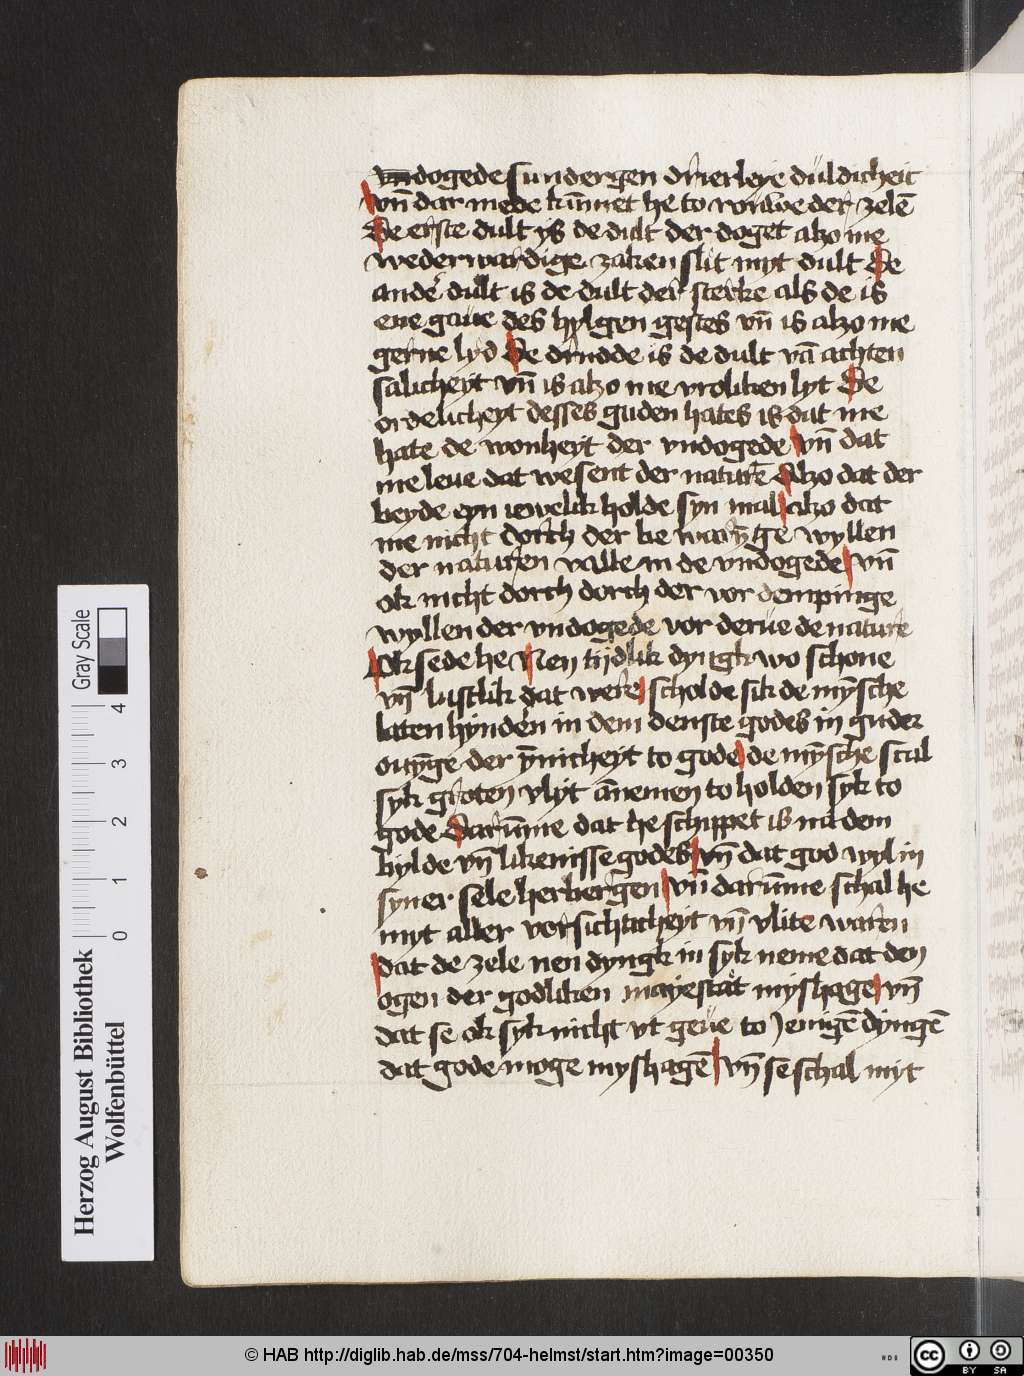 vndogede sundergen drierleye düldicheit
vn̄ dar mede kūmet he to rouwe der zelē
De erste dult ys de dult der doget alzo me
wederwardige zaken slit myt dult De
ander dult is de dult der sterke als de is
ene gaue des hylgen gestes vn̄ is alzo me
gerne lyd De drudde is de dult vā achten
salicheyt vn̄ is alzo me vroliken lyt De
ordelicheyt desses guden hates is dat me
hate de wonheyt der vndogede vn̄ dat
me leue dat wesent der naturē Alzo dat der
beyde eyn iewelik holde syn mal alzo dat
me nicht dorch der be warȳge wyllen
der naturen valle in de vndogede vn̄
ok nicht dorch dorch der vor dempinge
wyllen der vndogede vor derue de nature
Ok sede he Nen tijdlik dyngk wo schone
vn̄ lustlik dat were scholde sik de mȳsche
laten hynderen in dem denste godes in guder
ouȳge der ȳnicheyt to gode de mȳsche scal
syk groten vlyt ānemen to holden syk to
gode Darūme dat he schippet is na dem
bylde vn̄ likenisse godes vn̄ dat god wyl in
syner sele herbergen vn̄ darūme schal he
myt aller vorsichticheyt vn̄ vlite waren
dat de zele nen dyngk in syk neme dat den
ogen der godliken mayestat myshage vn̄
dat se ok syk nicht vt geue to jenigē dyngē
dat gode moge myshagē vn̄ se schal myt
Herzog August Bibliothek
Wolfenbüttel
Gray Scale
0 1 2 3 4
© HAB http://diglib.hab.de/mss/704-helmst/start.htm?image=00350
HAB
cc BY SA